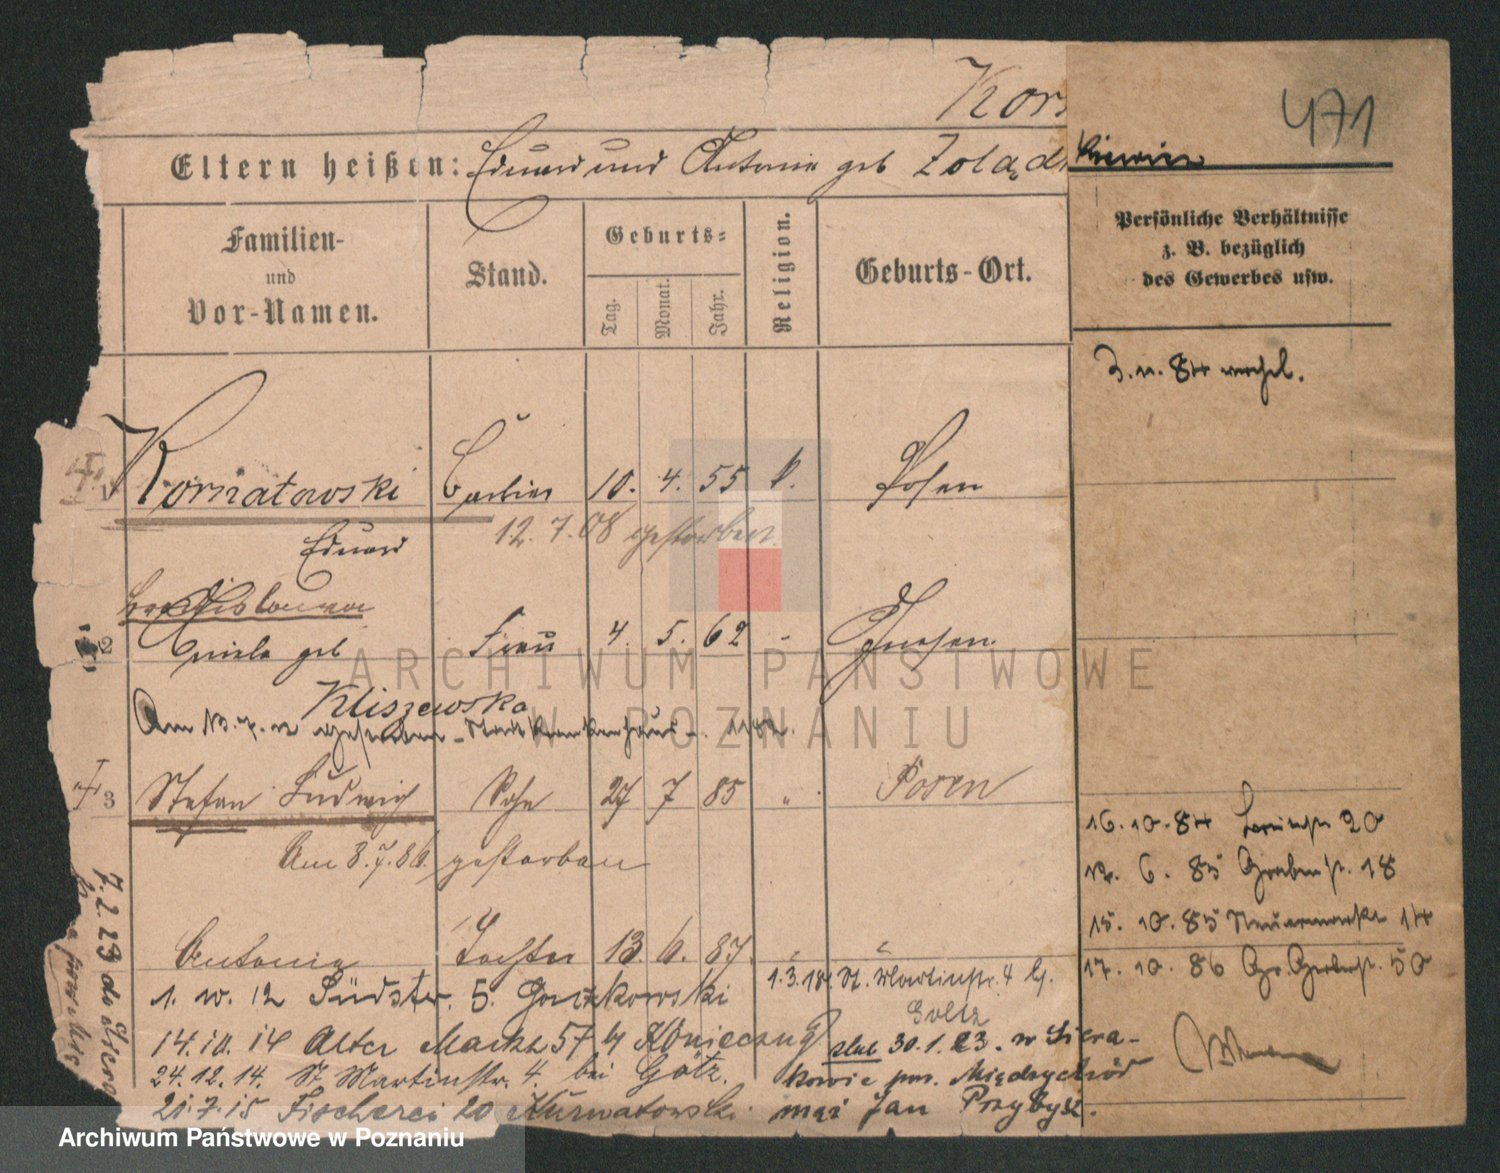 471
Kor
Eltern heißen: Eduard und Antonie geb Zolądkiewicz
Persönliche Verhältnisse
z. B. bezüglich
des Gewerbes usw.
Familien-
und
Vor-Namen.
Stand.
Geburts-
Tag.
Monat.
Jahr.
Religion.
Geburts-Ort.
3. 11. 84
1 Kornatowski 10. 4. 55 k. Posen
Eduard
12. 7. 08 gestorben
2 geb Frau 4. 5. 62 " Gnesen
Kliszewska
gestorben Stadtkrankenhaus
3 Stefan Ludwig Sohn 27 7 85 " Posen
Am 8.7.86 gestorben
16. 10. 84 20
6. 85 Grabenstr. 18
15. 10. 85 Neuermarkt 14
17. 10. 86 Gr. Gerberstr. 50
Antonie Tochter 13. 6. 87. " "
1. 10. 12 Südstr. 5. Gorzkowski
1.3.18 St. Martinstr. 4 b.
Goltz
14.10.14 Alter Markt 57 by Konieczny
ślub 30.1.23. w Siera-
24.12.14. St Martinstr. 4. bei Götz.
kowie pow. Międzychód
21.7.15 Fischerei 20 Kurnatowski
mąż Jan Przybysz.
7.2.23 do
ARCHIWUM PAŃSTWOWE
W POZNANIU
Archiwum Państwowe w Poznaniu